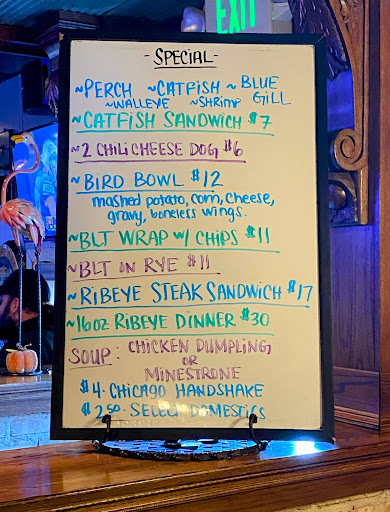 EXIT
- SPECIAL -
~PERCH ~CATFISH ~BLUE GILL
~WALLEYE ~SHRIMP
~CATFISH SANDWICH $7
~2 CHILI CHEESE DOG $6
~BIRD BOWL $12
mashed potato, corn, cheese,
gravy, boneless wings.
~BLT WRAP W/ CHIPS $11
~BLT ON RYE $11
~RIBEYE STEAK SANDWICH $17
~16OZ RIBEYE DINNER $30
SOUP: CHICKEN DUMPLING
OR
MINESTRONE
$4 - CHICAGO HANDSHAKE
$2.50 - SELECT DOMESTICS